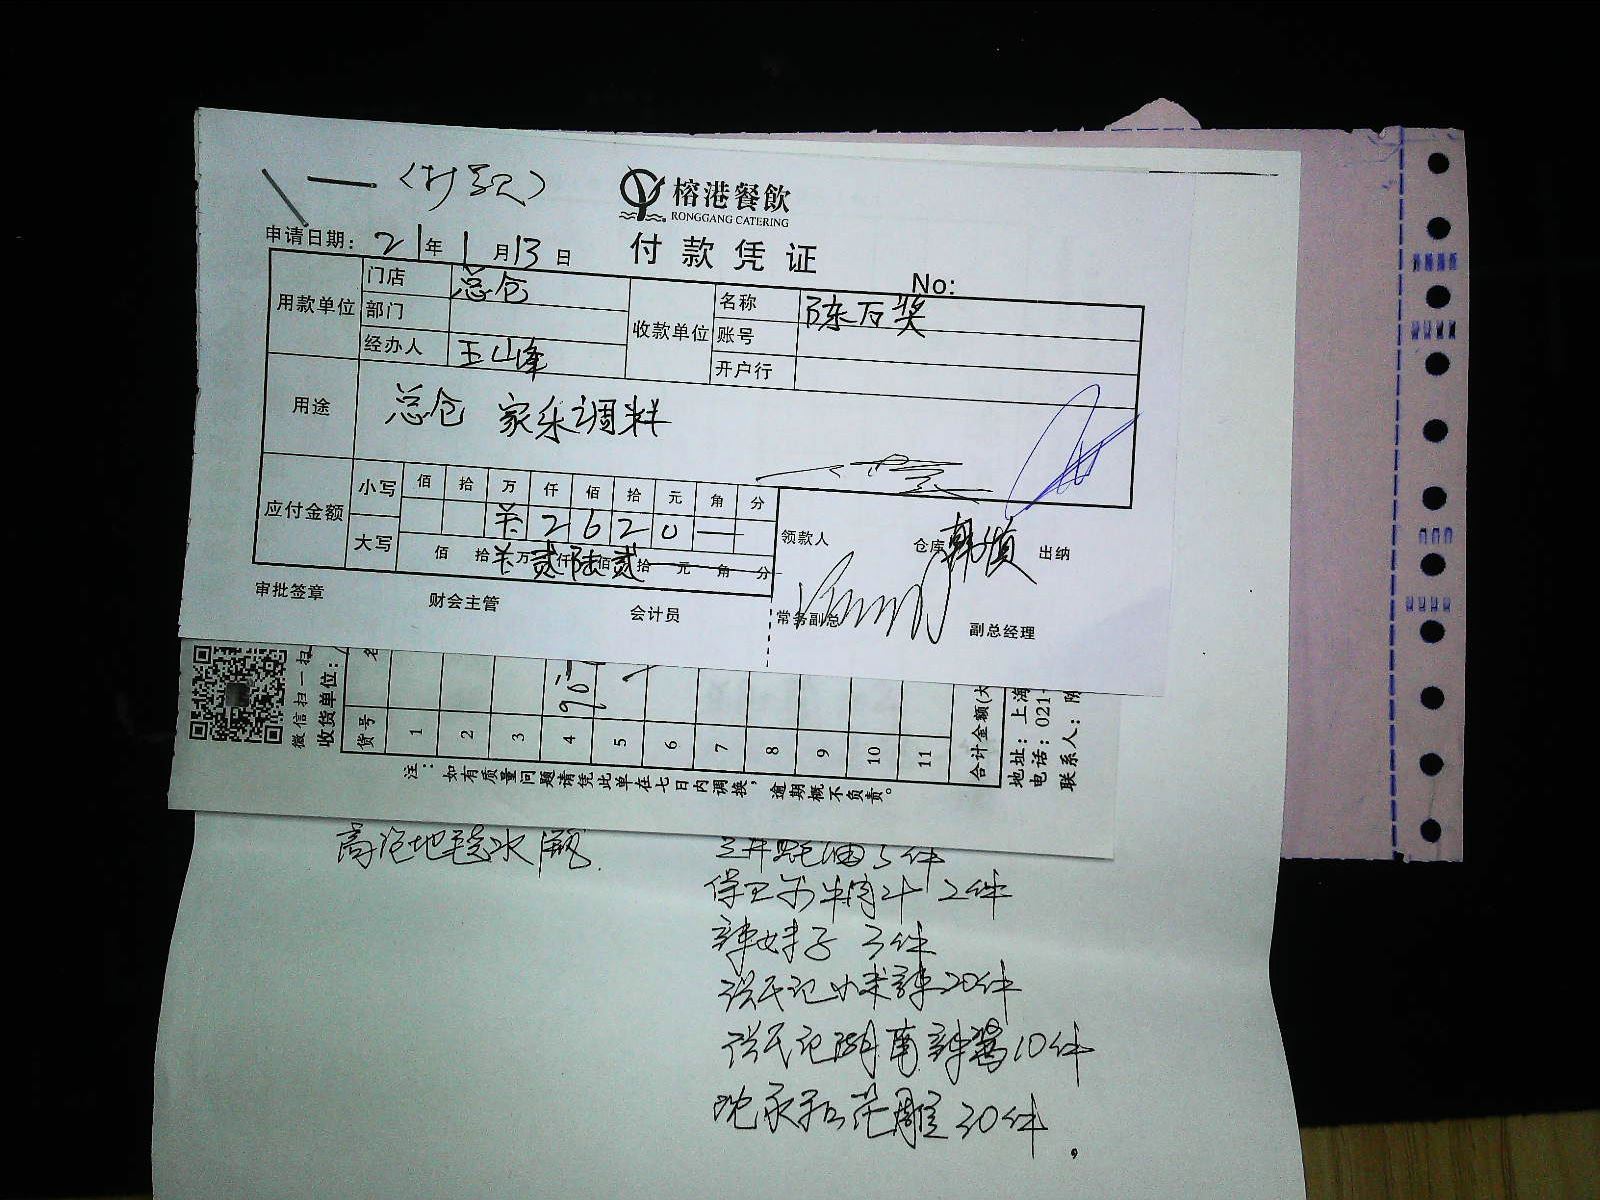 (打款)
榕港餐飲
RONGGANG CATERING
申请日期: 21年1月13日
付款凭证
No:
用款单位 门店 总仓 收款单位 名称 陈万奖
部门 账号
经办人 王山峰 开户行
用途 总仓 家乐调料
应付金额 小写 佰 拾 万 仟 佰 拾 元 角 分
2 6 2 0 —
大写 佰 拾 万 贰 仟 陆 佰 贰 拾 元 角 分
领款人 仓库 韩慎 出纳
审批签章 财会主管 会计员 常务副总 副总经理
微信扫一扫
收货单位:
货号 1 2 3 4 5 6 7 8 9 10 11
合计金额(大
地址: 上海
电话: 021-
联系人: 陈
注: 如有质量问题请凭此单在七日内调换, 逾期概不负责。
高泡地毯水
蚝油 5件
保卫尔牛肉汁 2件
辣妹子 3件
洪民记小米辣20件
洪民记湖南辣酱10件
沈永和花雕30件